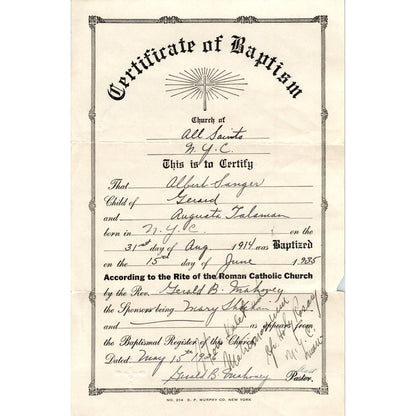 Certificate of Baptism
Church of
All Saints
N.Y.C.
This is to Certify
That Albert Sanger
Child of Gerard
and Augusta Talaman
born in N.Y.C. on the
31st day of Aug. 1914 was Baptized
on the 15th day of June 1935
According to the Rite of the Roman Catholic Church
by the Rev. Gerald B. Mahoney
the Sponsors being Mary
and as appears from
the Baptismal Register of this Church.
Dated May 15th
Gerald B. Mahoney
Pastor.
of Holy Rosary
N.Y.C.
NO. 214 D. P. MURPHY CO. NEW YORK